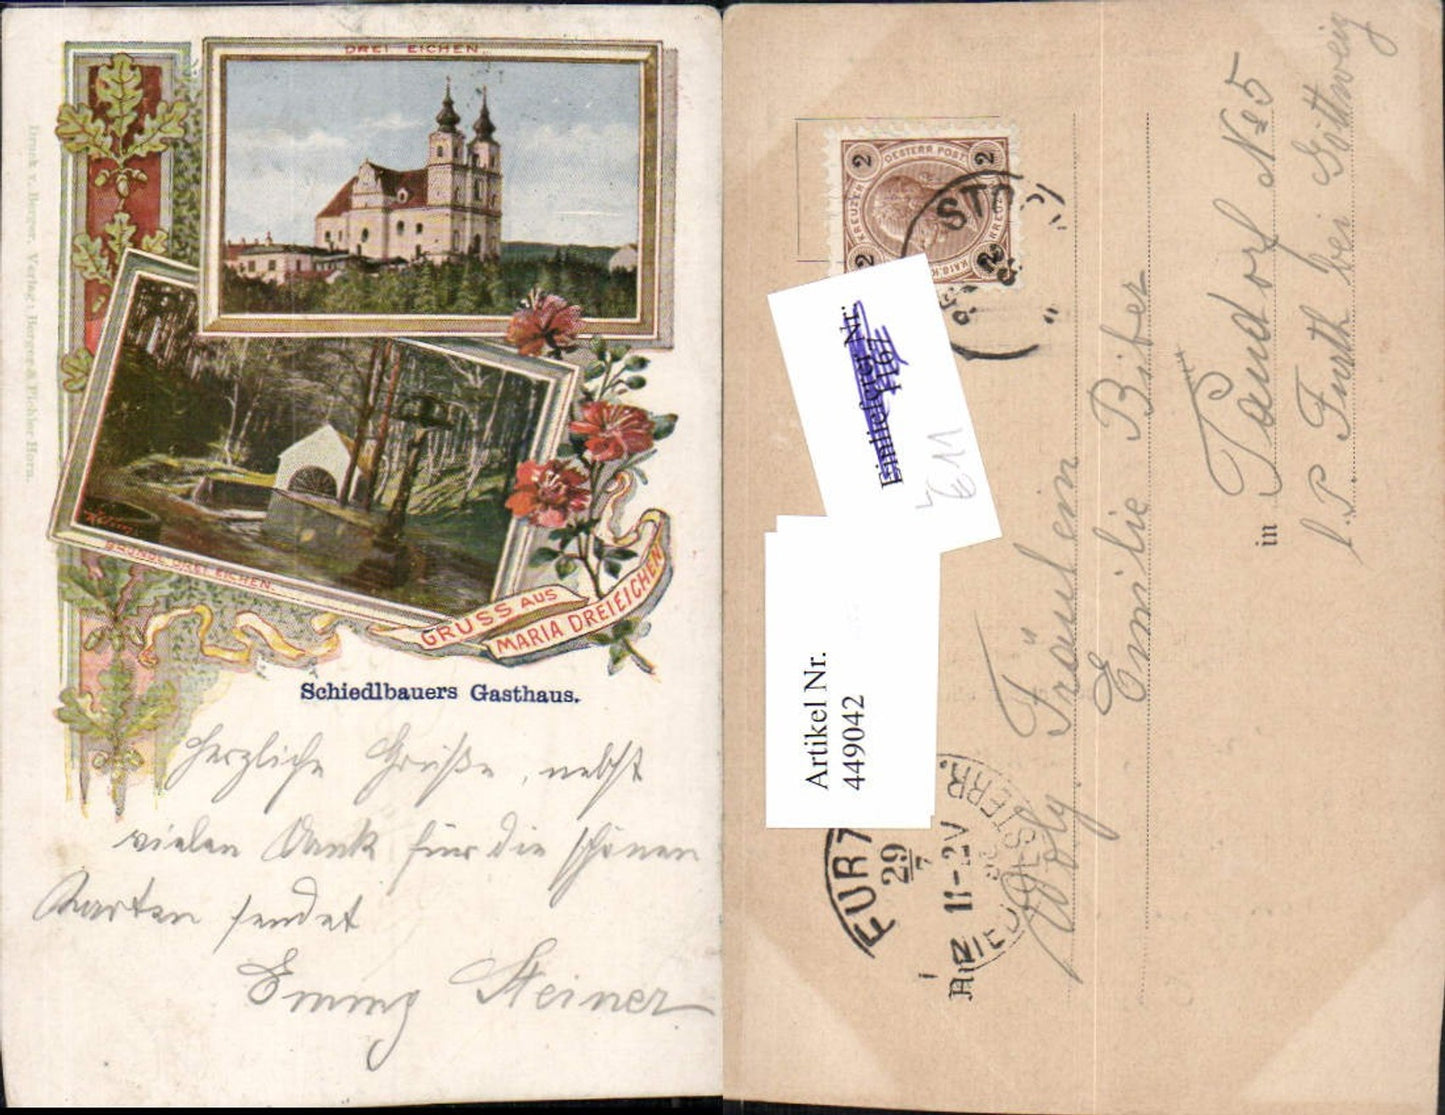 DREI EICHEN.
BRÜNDL DREI EICHEN.
GRUSS AUS
MARIA DREIEICHEN
Schiedlbauers Gasthaus.
Druck v. Berger. Verlag: Berger & Pichler Horn.
Herzliche Grüße, nebst
vielen Dank für die schönen
Karten sendet
Emmy Steiner
OESTERR. POST
2 2
KREUZER KREUZER
2 2
STOJ
Einlieferer Nr.
1167
Artikel Nr.
449042
Wohlg. Fräulein
Emilie Biber
in Paudorf No 5
l. P. Furth bei Göttweig
FURT
29
7
11-12V